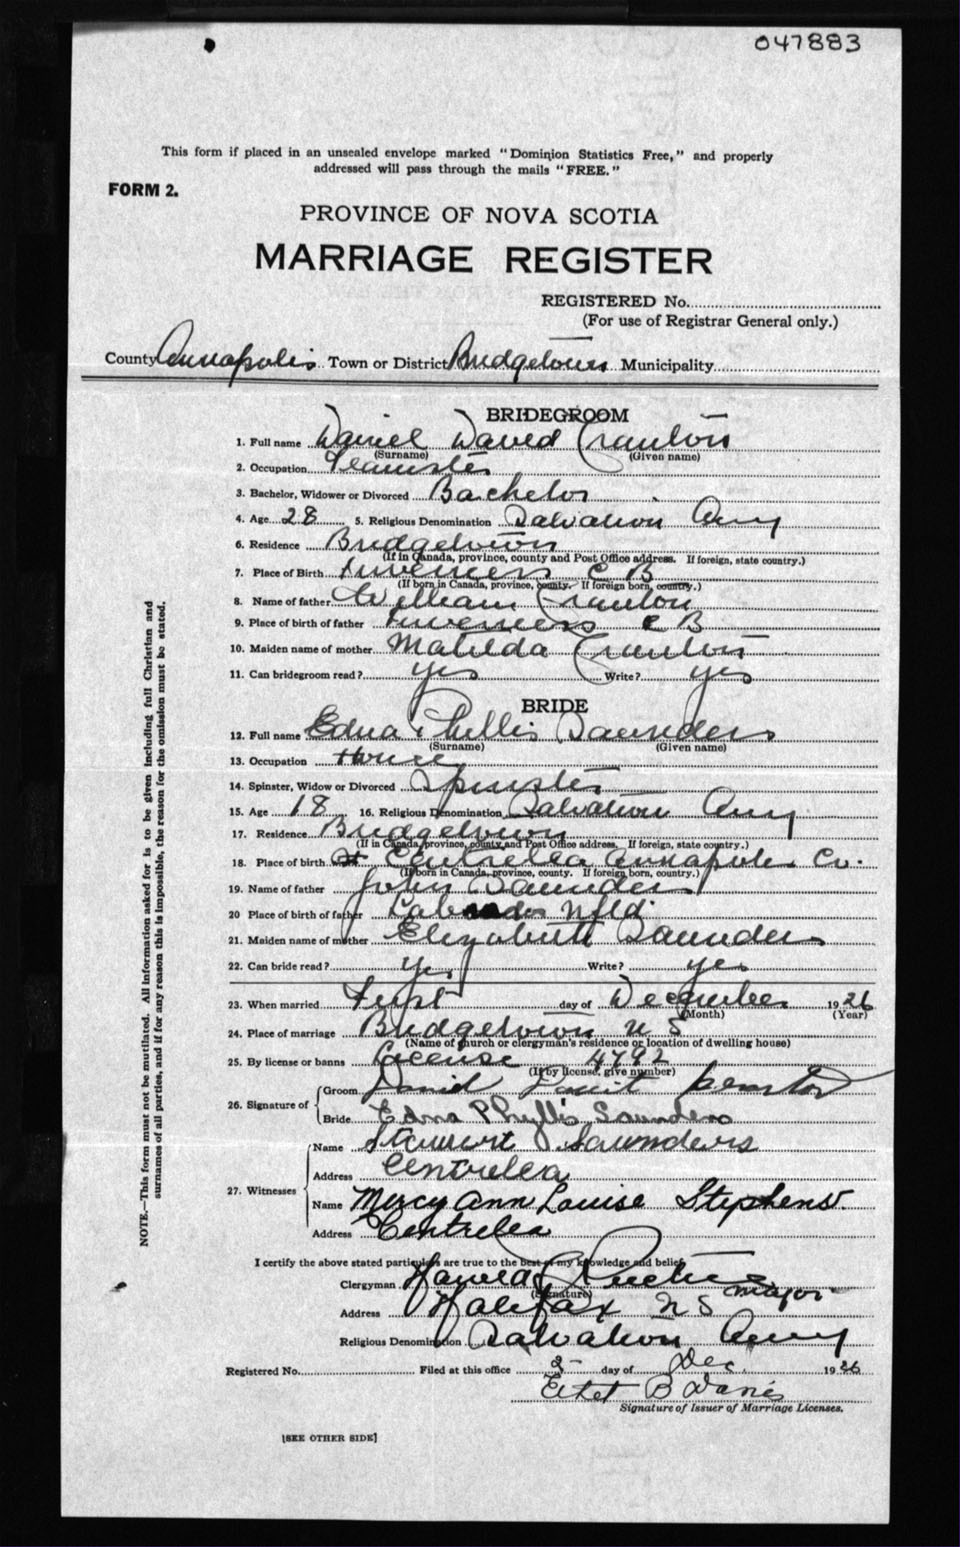 047883
This form if placed in an unsealed envelope marked "Dominion Statistics Free," and properly
addressed will pass through the mails "FREE."
FORM 2.
PROVINCE OF NOVA SCOTIA
MARRIAGE REGISTER
REGISTERED No.
(For use of Registrar General only.)
County Annapolis Town or District Bridgetown Municipality
BRIDEGROOM
1. Full name Daniel David Cranton
(Surname) (Given name)
2. Occupation Teamster
3. Bachelor, Widower or Divorced Bachelor
4. Age 28 5. Religious Denomination Salvation Army
6. Residence Bridgetown
(If in Canada, province, county and Post Office address. If foreign, state country.)
7. Place of Birth Inverness C B
(If born in Canada, province, county. If foreign born, country.)
8. Name of father William Cranton
9. Place of birth of father Inverness C B
10. Maiden name of mother Matilda Cranton
11. Can bridegroom read? yes Write? yes
BRIDE
12. Full name Edna Phyllis Saunders
(Surname) (Given name)
13. Occupation
14. Spinster, Widow or Divorced Spinster
15. Age 18 16. Religious Denomination Salvation Army
17. Residence Bridgetown
(If in Canada, province, county and Post Office address. If foreign, state country.)
18. Place of birth Centrelea Annapolis Co.
(If born in Canada, province, county. If foreign born, country.)
19. Name of father John Saunders
20 Place of birth of father Labrador Nfld.
21. Maiden name of mother Elizabeth Saunders
22. Can bride read? yes Write? yes
23. When married First day of December 1926
(Month) (Year)
24. Place of marriage Bridgetown N S
(Name of church or clergyman's residence or location of dwelling house)
25. By license or banns License 4792
(If by license, give number)
26. Signature of Groom Daniel Cranton
Bride Edna Phyllis Saunders
27. Witnesses Name Stewart Saunders
Address Centrelea
Name Mercy Ann Louise Stephens.
Address Centrelea
I certify the above stated particulars are true to the best of my knowledge and belief,
Clergyman Harold Major
(Signature)
Address Halifax N S
Religious Denomination Salvation Army
Registered No. Filed at this office 2 day of Dec 1926
Ethel B Davis
Signature of Issuer of Marriage Licenses.
[SEE OTHER SIDE]
NOTE.—This form must not be mutilated. All information asked for is to be given including full Christian and
surnames of all parties, and if for any reason this is impossible, the reason for the omission must be stated.